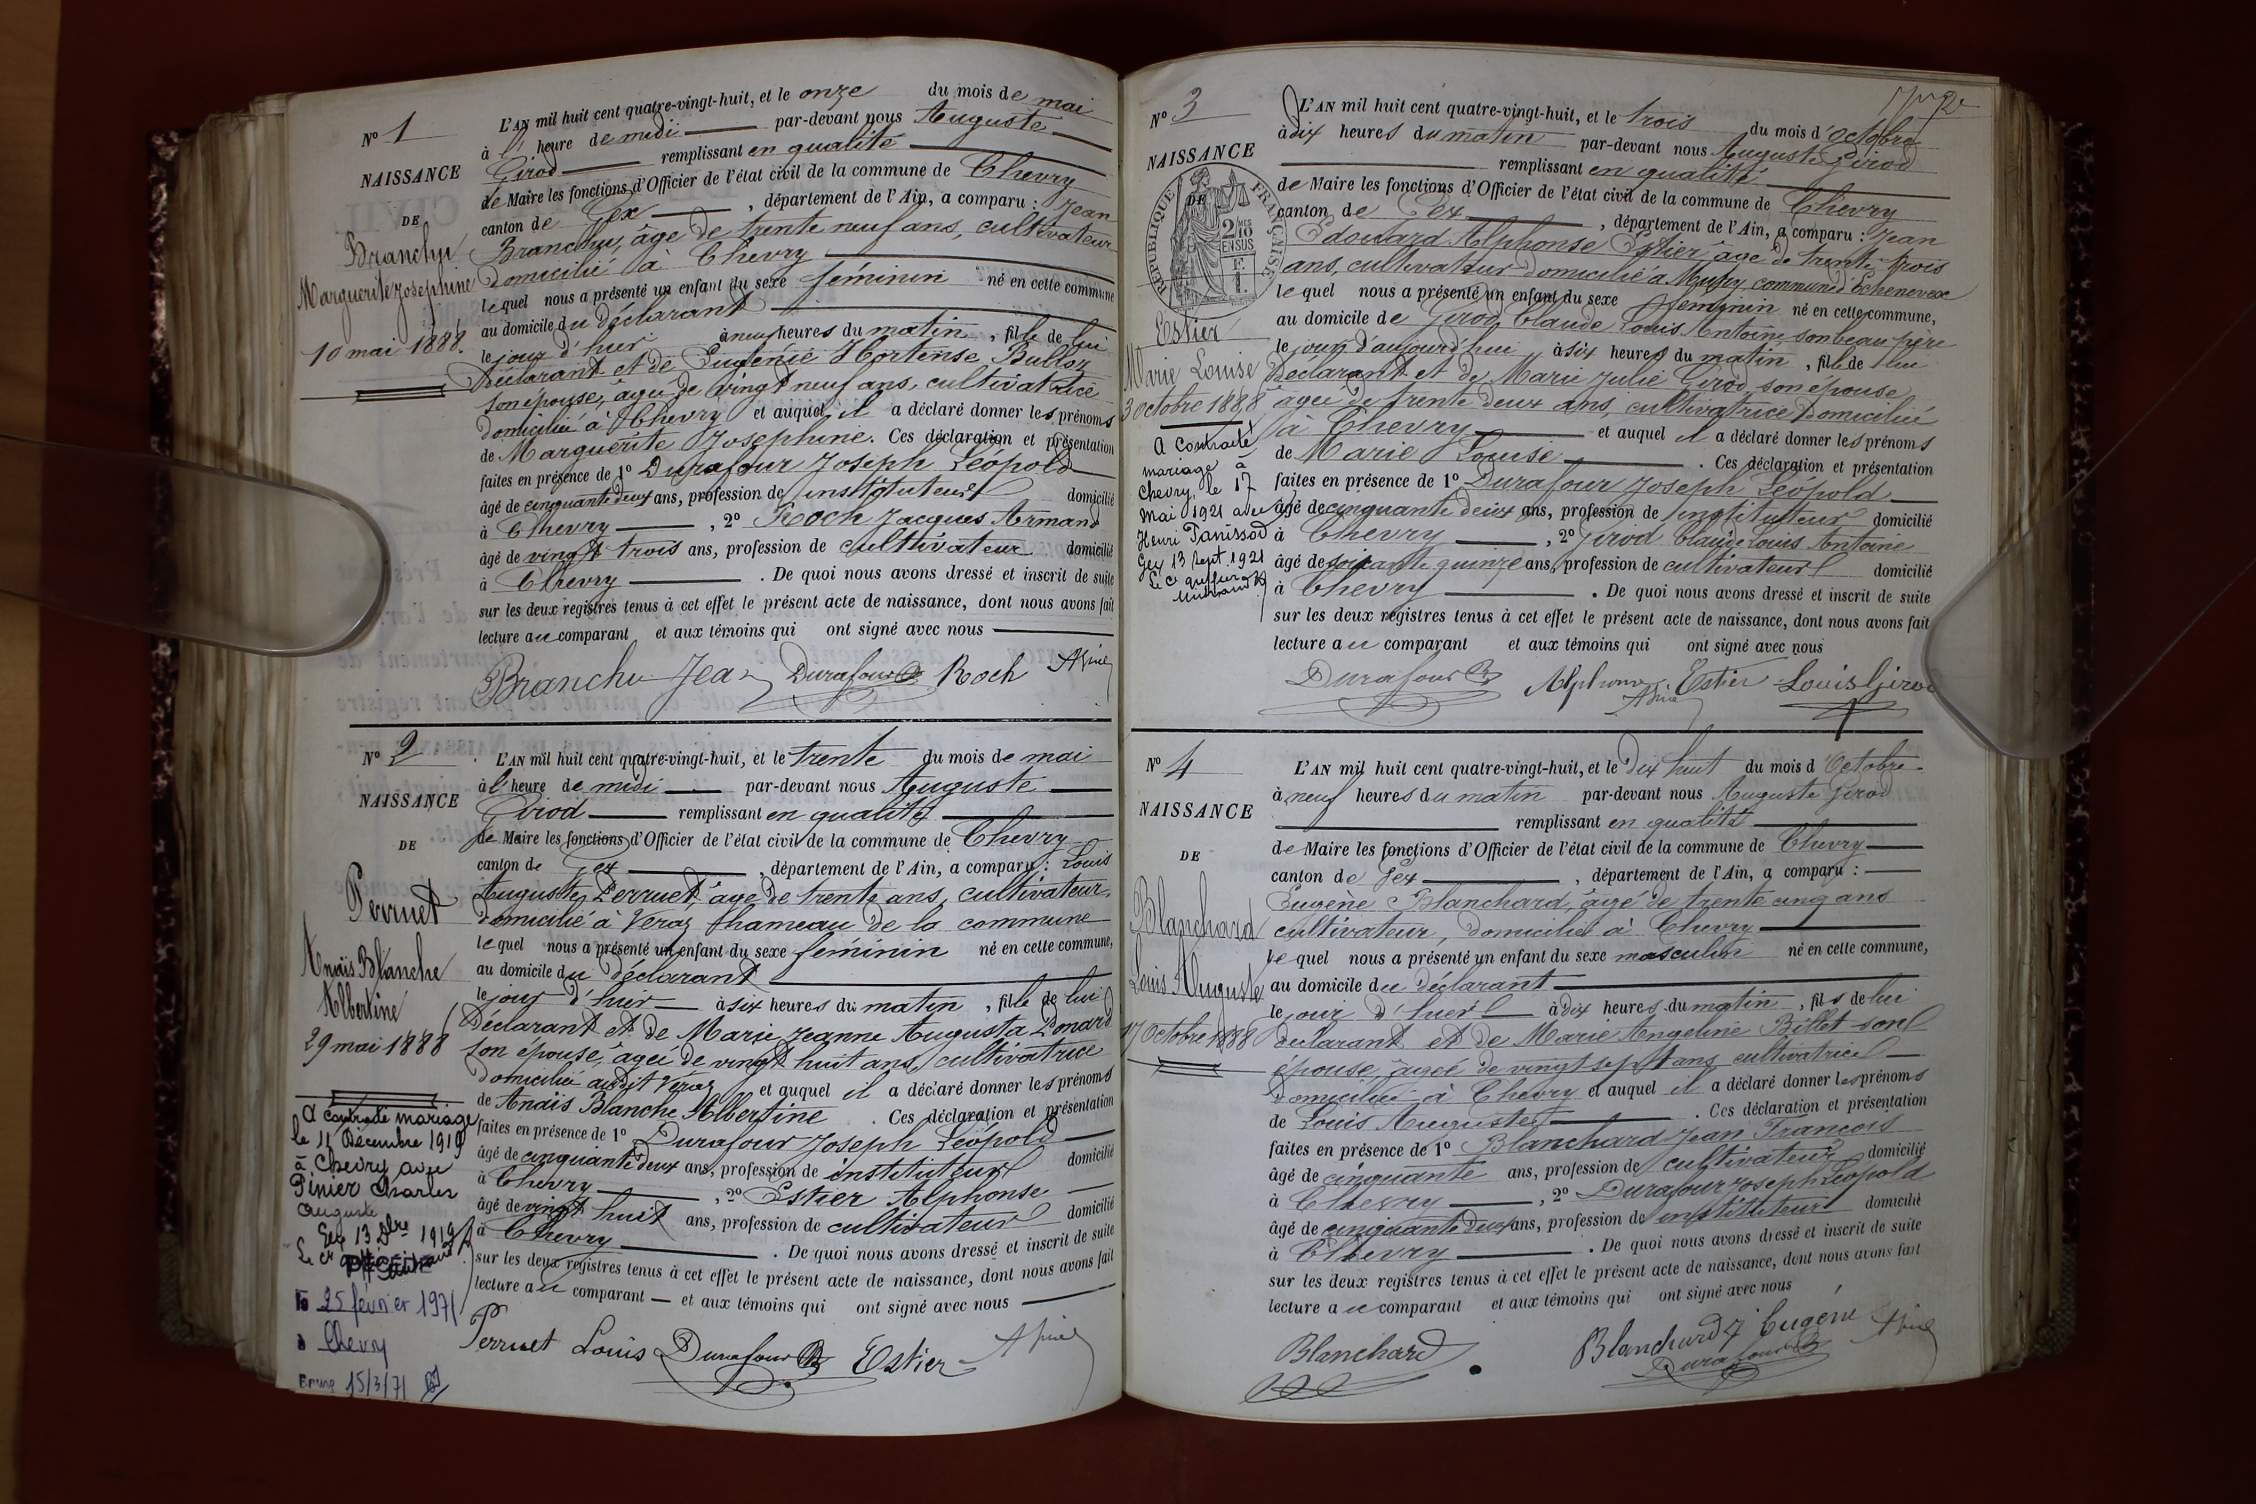 N° 1
NAISSANCE
DE
Branchu
Marguerite Josephine
10 mai 1888.
L'AN mil huit cent quatre-vingt-huit, et le onze du mois de mai
à l' heure de midi par-devant nous Auguste
Girod remplissant en qualité
de Maire les fonctions d'Officier de l'état civil de la commune de Chevry
canton de Gex, département de l'Ain, a comparu : Jean
Branchu, âgé de trente neuf ans, cultivateur
domicilié à Chevry
lequel nous a présenté un enfant du sexe féminin né en cette commune
au domicile du déclarant
le jour d'hier à neuf heures du matin, fille de lui
déclarant et de Eugénie Hortense Bulloz
son épouse, âgée de vingt neuf ans, cultivatrice
domiciliée à Chevry et auquel il a déclaré donner les prénoms
de Marguerite Josephine. Ces déclaration et présentation
faites en présence de 1° Durafour Joseph Léopold
âgé de cinquante deux ans, profession de instituteur domicilié
à Chevry, 2° Roch Jacques Armand
âgé de vingt trois ans, profession de cultivateur domicilié
à Chevry. De quoi nous avons dressé et inscrit de suite
sur les deux registres tenus à cet effet le présent acte de naissance, dont nous avons fait
lecture au comparant et aux témoins qui ont signé avec nous
Branchu Jean Durafour Roch
N° 2
NAISSANCE
DE
Perruet
Anaïs Blanche
Albertine
29 mai 1888
A contracté mariage
le 11 Décembre 1919
à Chevry avec
Pinier Charles
Auguste
Gex 13 Dbre 1919
DÉCÉDÉE
le 25 février 1971
à Chevry
15/3/71
L'AN mil huit cent quatre-vingt-huit, et le trente du mois de mai
à l' heure de midi par-devant nous Auguste
Girod remplissant en qualité
de Maire les fonctions d'Officier de l'état civil de la commune de Chevry
canton de Gex, département de l'Ain, a comparu : Louis
Auguste Perruet âgé de trente ans, cultivateur,
domicilié à Veraz hameau de la commune
lequel nous a présenté un enfant du sexe féminin né en cette commune,
au domicile du déclarant
le jour d'hier à six heures du matin, fille de lui
déclarant et de Marie Jeanne Augusta Ponard
son épouse, âgée de vingt huit ans, cultivatrice
domiciliée audit Veraz et auquel il a déclaré donner les prénoms
de Anaïs Blanche Albertine. Ces déclaration et présentation
faites en présence de 1° Durafour Joseph Léopold
âgé de cinquante deux ans, profession de instituteur domicilié
à Chevry, 2° Estier Alphonse
âgé de vingt huit ans, profession de cultivateur domicilié
à Chevry. De quoi nous avons dressé et inscrit de suite
sur les deux registres tenus à cet effet le présent acte de naissance, dont nous avons fait
lecture au comparant et aux témoins qui ont signé avec nous
Perruet Louis Durafour Estier
N° 3
NAISSANCE
DE
RÉPUBLIQUE FRANÇAISE
Estier
Marie Louise
3 octobre 1888
A contracté
mariage à
Chevry le 17
Mai 1921 avec
Henri Panissod
Gex 13 Sept. 1921
L'AN mil huit cent quatre-vingt-huit, et le trois du mois d'octobre
à dix heures du matin par-devant nous Auguste Girod
remplissant en qualité
de Maire les fonctions d'Officier de l'état civil de la commune de Chevry
canton de Gex, département de l'Ain, a comparu : Jean
Edouard Alphonse Estier âgé de trente trois
ans, cultivateur domicilié à Mury commune d'Echenevex
lequel nous a présenté un enfant du sexe féminin né en cette commune,
au domicile de Girod Claude Louis Antoine, son beau père
le jour d'aujourd'hui à six heures du matin, fille de lui
déclarant et de Marie Julie Girod son épouse
âgée de trente deux ans, cultivatrice domiciliée
à Chevry et auquel il a déclaré donner les prénoms
de Marie Louise. Ces déclaration et présentation
faites en présence de 1° Durafour Joseph Léopold
âgé de cinquante deux ans, profession de instituteur domicilié
à Chevry, 2° Girod Claude Louis Antoine
âgé de soixante quinze ans, profession de cultivateur domicilié
à Chevry. De quoi nous avons dressé et inscrit de suite
sur les deux registres tenus à cet effet le présent acte de naissance, dont nous avons fait
lecture au comparant et aux témoins qui ont signé avec nous
Durafour Alphonse Estier Louis Girod
N° 4
NAISSANCE
DE
Blanchard
Louis Auguste
17 Octobre 1888
L'AN mil huit cent quatre-vingt-huit, et le dix huit du mois d'Octobre
à neuf heures du matin par-devant nous Auguste Girod
remplissant en qualité
de Maire les fonctions d'Officier de l'état civil de la commune de Chevry
canton de Gex, département de l'Ain, a comparu :
Eugène Blanchard, âgé de trente cinq ans
cultivateur, domicilié à Chevry
lequel nous a présenté un enfant du sexe masculin né en cette commune,
au domicile du déclarant
le jour d'hier à dix heures du matin, fils de lui
déclarant et de Marie Angeline Billet son
épouse âgée de vingt sept ans cultivatrice
domiciliée à Chevry et auquel il a déclaré donner les prénoms
de Louis Auguste. Ces déclaration et présentation
faites en présence de 1° Blanchard Jean François
âgé de cinquante ans, profession de cultivateur domicilié
à Chevry, 2° Durafour Joseph Léopold
âgé de cinquante deux ans, profession de instituteur domicilié
à Chevry. De quoi nous avons dressé et inscrit de suite
sur les deux registres tenus à cet effet le présent acte de naissance, dont nous avons fait
lecture au comparant et aux témoins qui ont signé avec nous
Blanchard Blanchard Eugène
Durafour